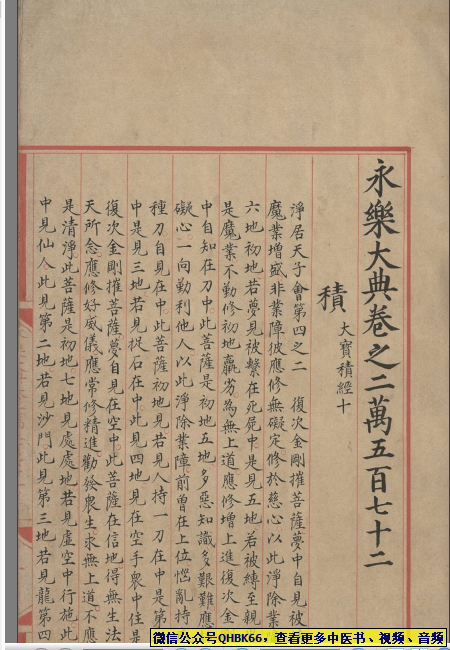 永樂大典卷之二萬五百七十二
積 大寶積經十
淨居天子會第四之二　復次金剛摧菩薩夢中自見被
魔業增盛非業障彼應修無礙定修於慈心以此淨除業
六地初地若夢見被繫在死屍中是見五地若被縛至親
是魔業不勤修初地羸劣為無上道應修增上進復次金
中自知在刀中此菩薩是初地五地多惡知識多艱難應
礙心一向勤利他人以此淨除業障前曾在上位惱亂持
種刀自見在中此菩薩初地見若見人持一刀在中是第
中是見三地若見捉石在中此見四地見在空手眾中住是
復次金剛摧菩薩夢自見在空中此菩薩在信地得無生法
天所念應修好威儀應常修精進勸發眾生求無上道不應
是清淨此菩薩是初地七地見處處地若見虛空中行施此
中見仙人此見第二地若見沙門此見第三地若見龍第四
微信公众号QHBK66，查看更多中医书、视频、音频